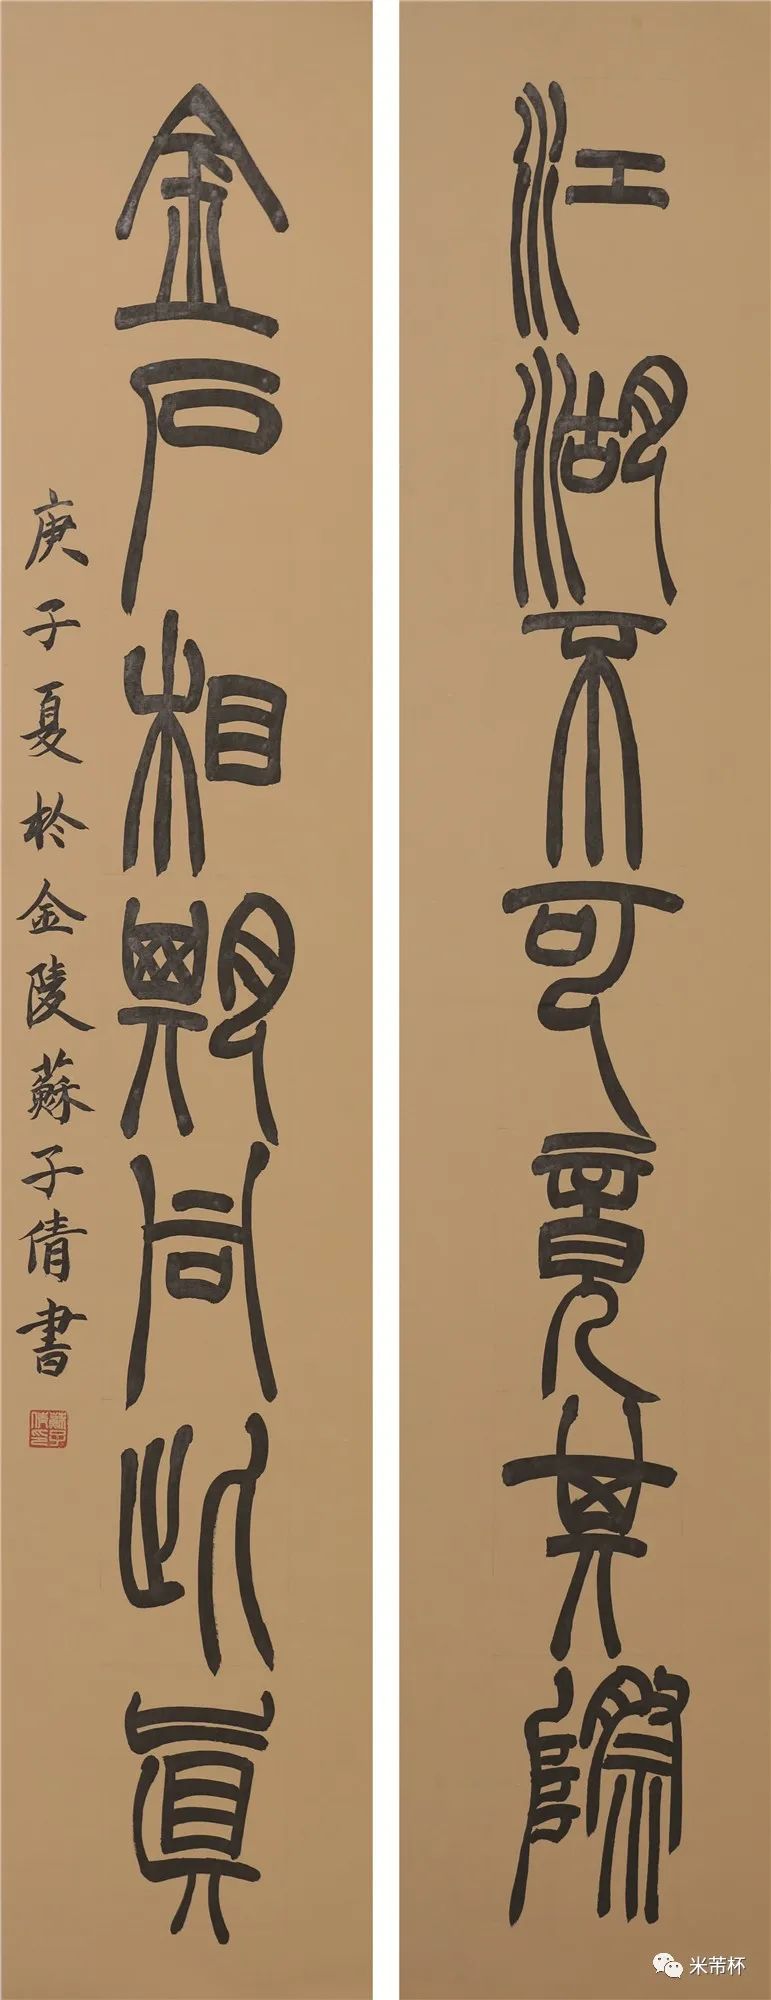 江湖不可竟其際
金石相期同此眞
庚子夏於金陵蘇子倩書
米芾杯